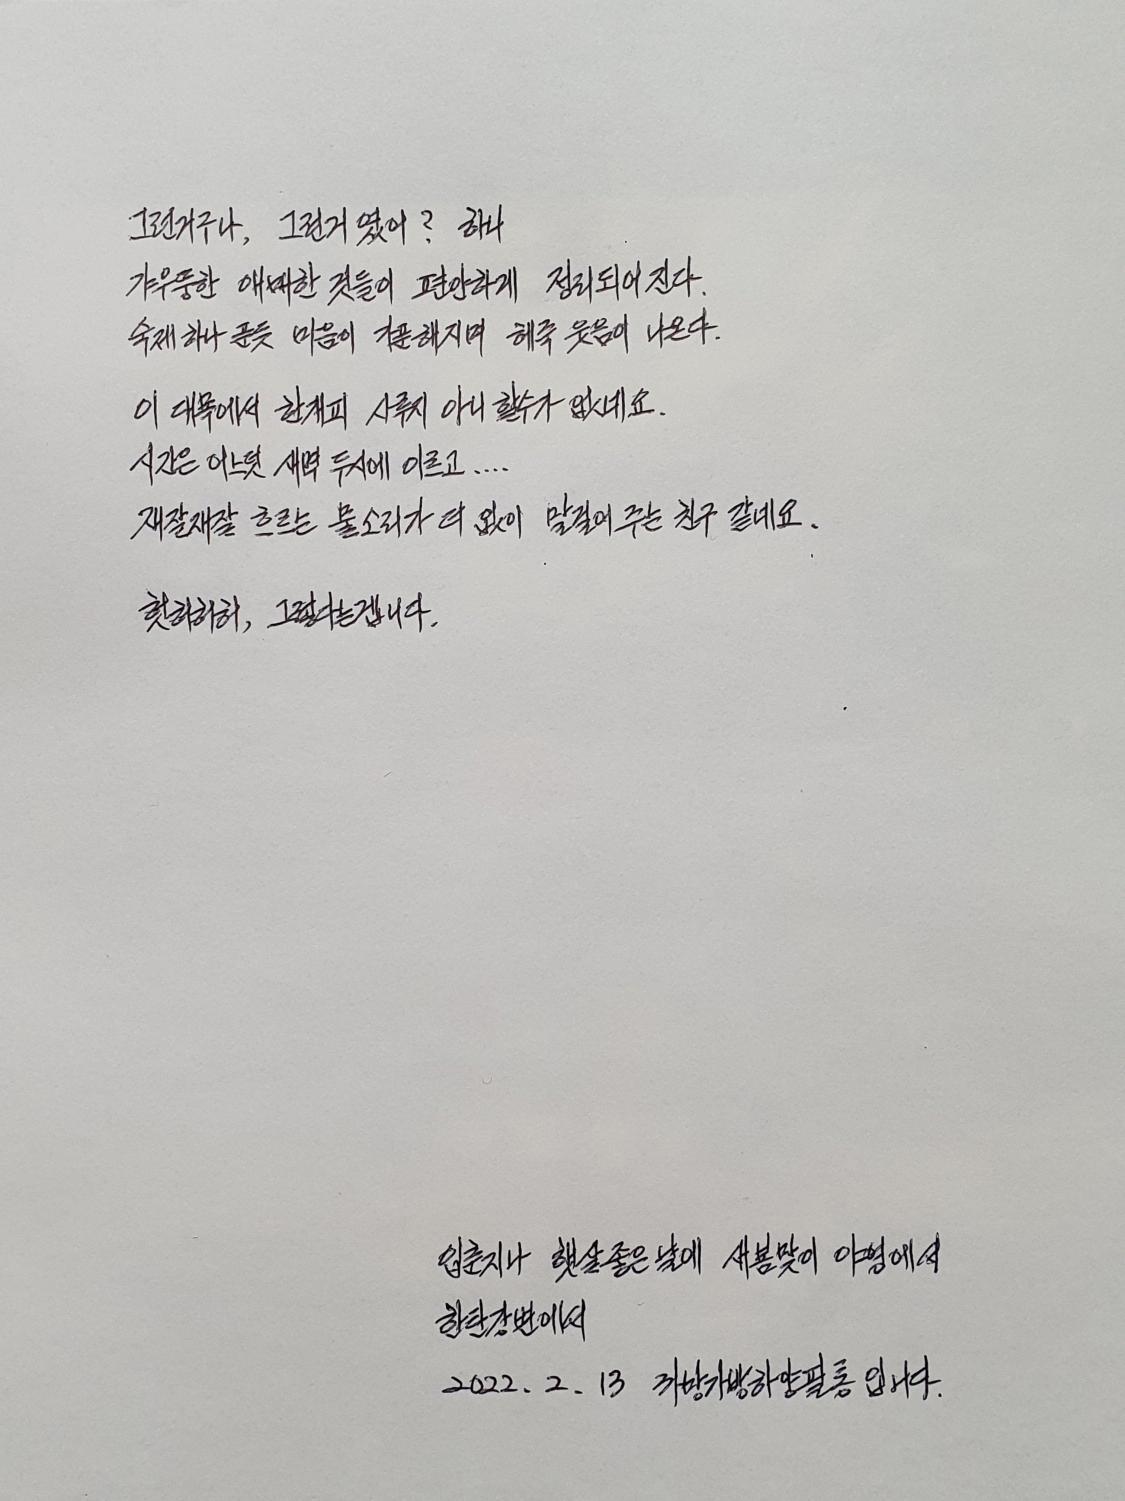 그런거구나, 그런거 였어? 하나
갸우뚱한 애매한 것들이 편안하게 정리되어 진다.
숙제 하나 푼듯 마음이 거뿐해지며 헤죽 웃음이 나온다.
이 대목에서 한개피 사루지 아니 할수가 없네요.
시간은 어느덧 새벽 두시에 이르고....
재잘재잘 흐르는 물소리가 더 없이 말걸어 주는 친구 같네요.
핫하하하, 그렇다는겝니다.
입춘지나 햇살좋은 날에 새봄맞이 야영에서
한탄강변에서
2022. 2. 13 입니다.